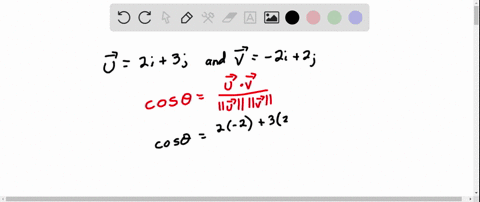 U⃗ = 2i + 3j and V⃗ = -2i + 2j
cosθ = U⃗ · V⃗ / ||U⃗|| ||V⃗||
cosθ = 2(-2) + 3(2